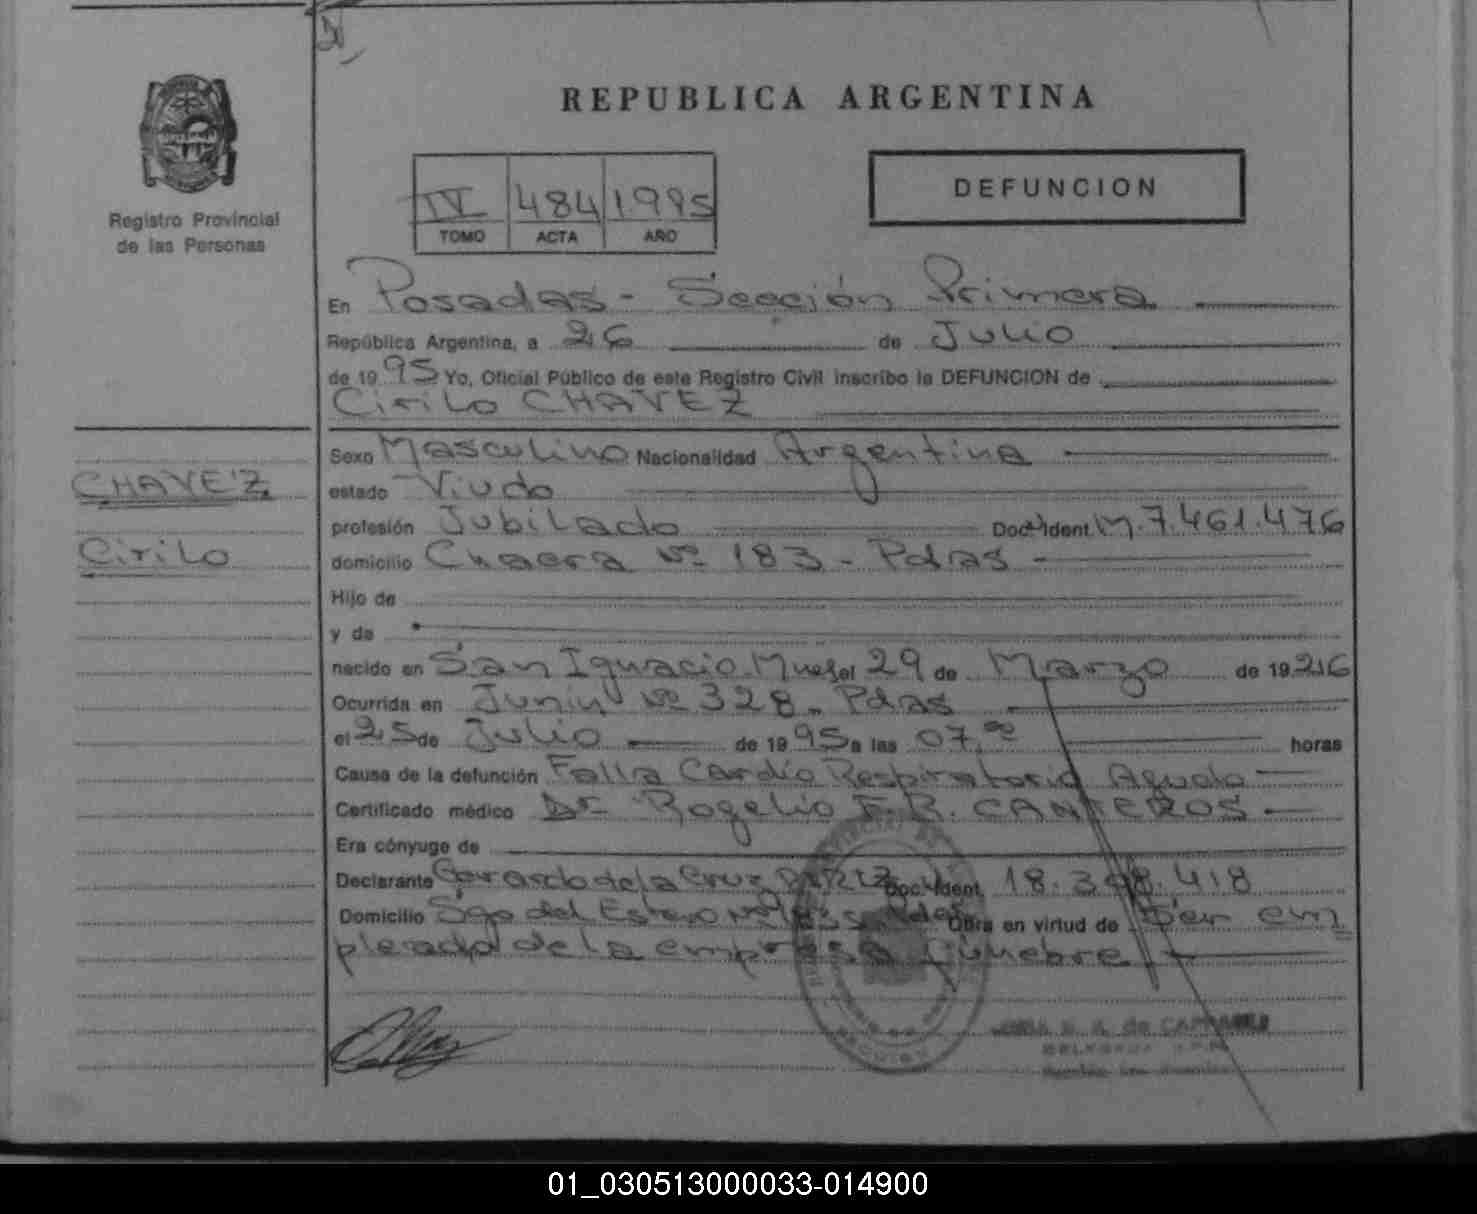 REPUBLICA ARGENTINA
Registro Provincial
de las Personas
IV 484 1995
TOMO ACTA AÑO
DEFUNCION
En Posadas - Sección Primera
República Argentina, a 26 de Julio
de 19 95 Yo, Oficial Público de este Registro Civil inscribo la DEFUNCION de
Cirilo CHAVEZ
CHAVEZ
Cirilo
Sexo Masculino Nacionalidad Argentina
estado Viudo
profesión Jubilado Doc. Ident M. 7.461.476
domicilio Chacra Nº 183 - Pdas
Hijo de
y de
nacido en San Ignacio Mnes el 29 de Marzo de 19 26
Ocurrida en Junin Nº 328 - Pdas
el 25 de Julio de 19 95 a las 07,00 horas
Causa de la defunción Falla Cardio Respiratoria Aguda
Certificado médico Dr Rogelio F.R. CANTEROS
Era cónyuge de
Declarante Gerardo de la Cruz Doc. Ident. 18.3 8.418
Domicilio Sgo del Estero Nº Pdas Obra en virtud de Ser em
pleado de la empresa fúnebre
de
01_030513000033-014900